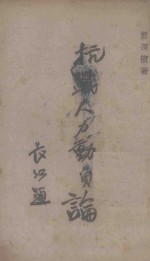 抗戰人力動員論
長江題